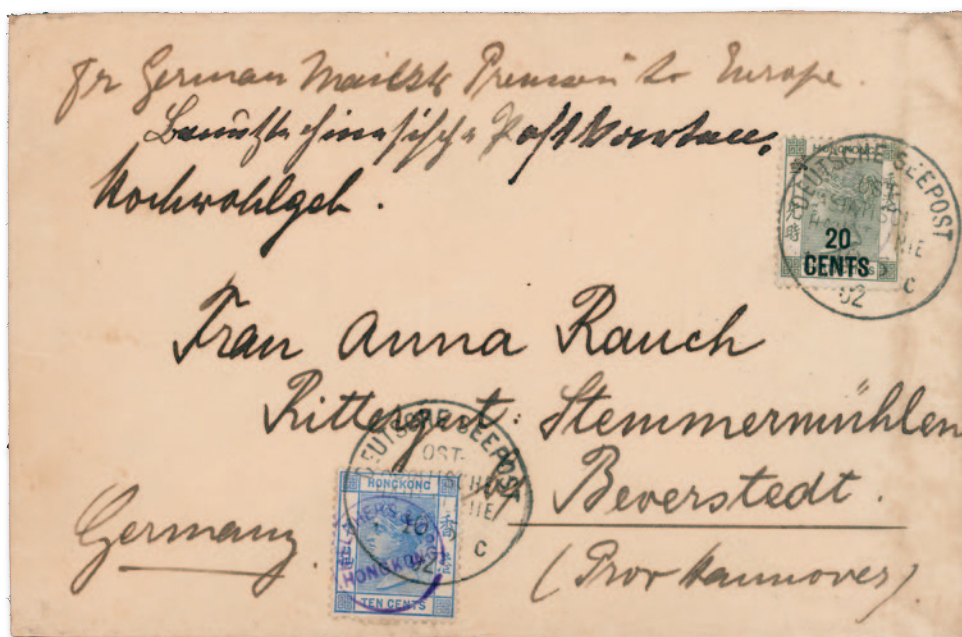 Pr German Mailstr Preussen to Europe.
Benützte chinesische Postkarten.
Hochwohlgeb.
HONGKONG
20
CENTS
DEUTSCHE SEEPOST
OST-
02
C
Frau Anna Rauch
Rittergut: Stemmermühlen
Beverstedt.
(Prov Hannover)
Germany.
DEUTSCHE SEEPOST
OST-
02
C
HONGKONG
TEN CENTS
HONGKONG